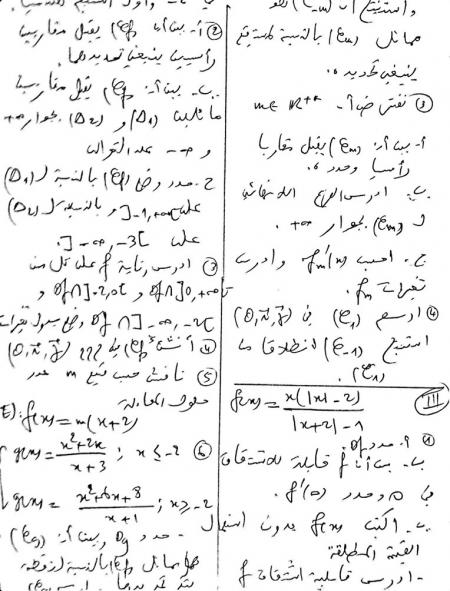 واستنتج أن
مماثل (Cm) بالنسبة لمستقيم
ينبغي تحديده.
③ نفترض أن m∈ℝ*+
أ- بين أن (Cm) يقبل مقاربا
رأسيا وحدده.
ب- ادرس الفرع اللانهائي
لـ (Cm) بجوار +∞.
ج- احسب f'm(x) وادرس
تغيرات fm.
④ ارسم (C1) في (O,i,j)
استنتج (C-1) انطلاقا من
(C1).
III f(x) = x(|x|-2) / (|x+2|-1)
① أ- حدد Df
ب- بين أن f قابلة للاشتقاق
في 0 وحدد f'(0).
ـ اكتب f(x) بدون استعمال
القيمة المطلقة
- ادرس قابلية اشتقاق f
② أ- بين أن (Cf) يقبل مقاربين
رأسيين ينبغي تحديدهما.
ب- بين أن (Cf) يقبل مقاربين
مائلين (D1) و (D2) بجوار +∞
و -∞ على التوالي
ج- حدد وضع (Cf) بالنسبة لـ (D1)
على ]-1,+∞[ و بالنسبة لـ (D2)
على ]-∞,-3[.
③ ادرس رتابة f على كل من
Df∩]0,+∞[ و Df∩]-2,0[ و
Df∩]-∞,-2[ وضع جدول تغيرات
④ أنشئ (Cf) في م م م (O,i,j)
⑤ ناقش حسب قيم m عدد
حلول المعادلة
(E): f(x) = m(x+2)
⑥ g(x) = (x²+2x)/(x+3) ; x ≤ -2
g(x) = (x²+6x+8)/(x+1) ; x ≥ -2
- حدد Dg وبين أن (Cg)
هو مماثل (Cf) بالنسبة لنقطة